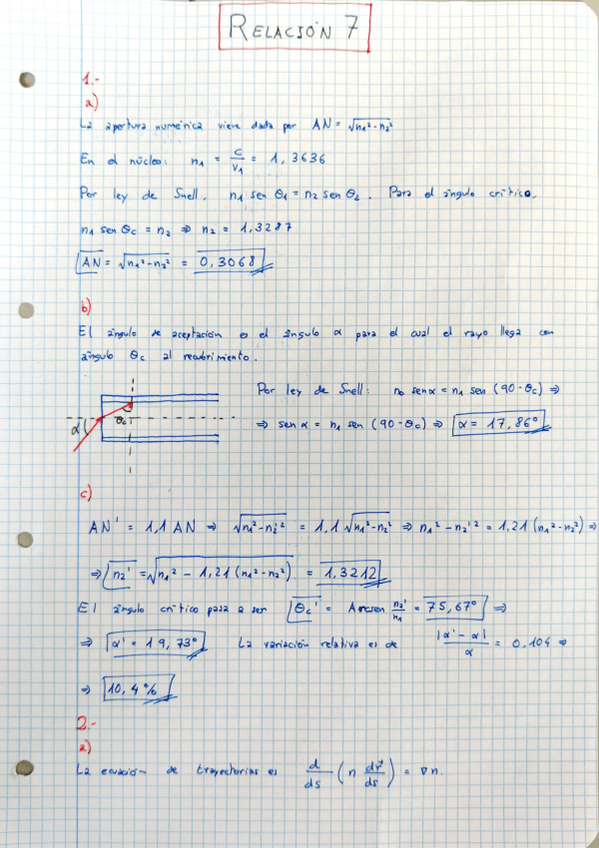 RELACIÓN 7
1.-
a)
La apertura numérica viene dada por AN = √(n₁² - n₂²)
En el núcleo: n₁ = c/v₁ = 1,3636
Por ley de Snell, n₁ sen θ₁ = n₂ sen θ₂. Para el ángulo crítico,
n₁ sen θc = n₂ ⇒ n₂ = 1,3287
AN = √(n₁² - n₂²) = 0,3068
b)
El ángulo de aceptación es el ángulo α para el cual el rayo llega con
ángulo θc al recubrimiento.
Por ley de Snell: n₀ sen α = n₁ sen (90 - θc) ⇒
α θc
⇒ sen α = n₁ sen (90 - θc) ⇒ α = 17,86°
c)
AN' = 1,1 AN ⇒ √(n₁² - n₂'²) = 1,1 √(n₁² - n₂²) ⇒ n₁² - n₂'² = 1,21 (n₁² - n₂²) ⇒
⇒ n₂' = √(n₁² - 1,21 (n₁² - n₂²)) = 1,3212
El ángulo crítico pasa a ser θc' = Arcsen n₂'/n₁ = 75,67° ⇒
⇒ α' = 19,73° La variación relativa es de |α' - α|/α = 0.104 ⇒
⇒ 10,4%
2.-
a)
La ecuación de trayectorias es d/ds (n dr⃗/ds) = ∇n.